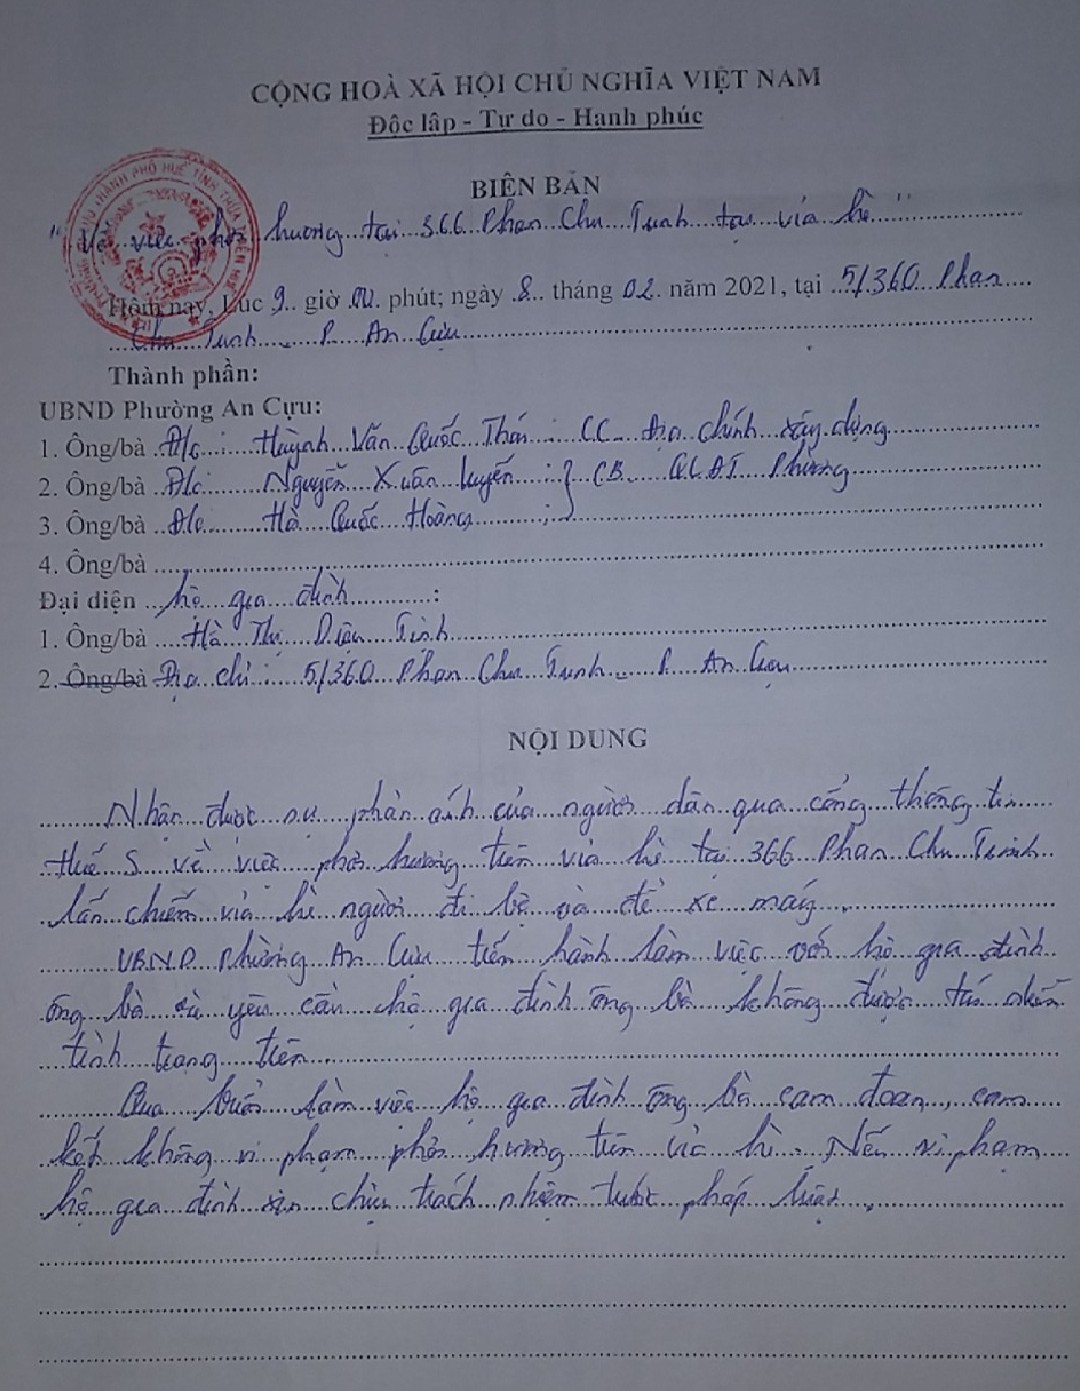 CỘNG HOÀ XÃ HỘI CHỦ NGHĨA VIỆT NAM
Độc lập - Tự do - Hạnh phúc
BIÊN BẢN
"Về việc phơi hương tại 366 Phan Chu Trinh tại vỉa hè"
Hôm nay, Lúc 9 giờ 00 phút; ngày 8 tháng 02 năm 2021, tại 5/360 Phan
Chu Trinh - P. An Cựu
Thành phần:
UBND Phường An Cựu:
1. Ông/bà Đ/c : Huỳnh Văn Quốc Thái : CC Địa chính xây dựng
2. Ông/bà Đ/c Nguyễn Xuân Luyến : } CB QLĐT Phường
3. Ông/bà Đ/c Hà Quốc Hoàng :
4. Ông/bà
Đại diện hộ gia đình :
1. Ông/bà Hà Thị Diệu Tịnh
2. Ông/bà Địa chỉ : 5/360 Phan Chu Trinh - P. An Cựu
NỘI DUNG
Nhận được sự phản ánh của người dân qua cổng thông tin
Huế S về việc phơi hương trên vỉa hè tại 366 Phan Chu Trinh
lấn chiếm vỉa hè người đi bộ và để xe máy.
UBND Phường An Cựu tiến hành làm việc với hộ gia đình
ông bà và yêu cầu hộ gia đình ông bà không được tái diễn
tình trạng trên.
Qua buổi làm việc hộ gia đình ông bà cam đoan, cam
kết không vi phạm phơi hương trên vỉa hè. Nếu vi phạm
hộ gia đình xin chịu trách nhiệm trước pháp luật.